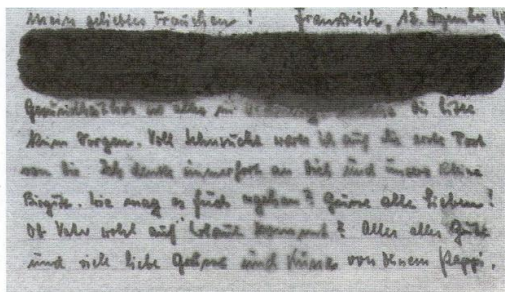 Mein geliebtes Frauchen! Frankreich, 18. Dezember 4
Gesundheitlich ist alles in
keine Sorgen. Voll Sehnsucht warte ich auf die erste Post
von Dir. Ich denke immerfort an Dich und unsere kleine
Birgitt. Wie mag es Euch ergehen? Grüsse alle Lieben!
Ob Vater wohl auf Urlaub kommt? Alles alles Gute
und viele liebe Grüsse und Küsse von Deinem Pappi.